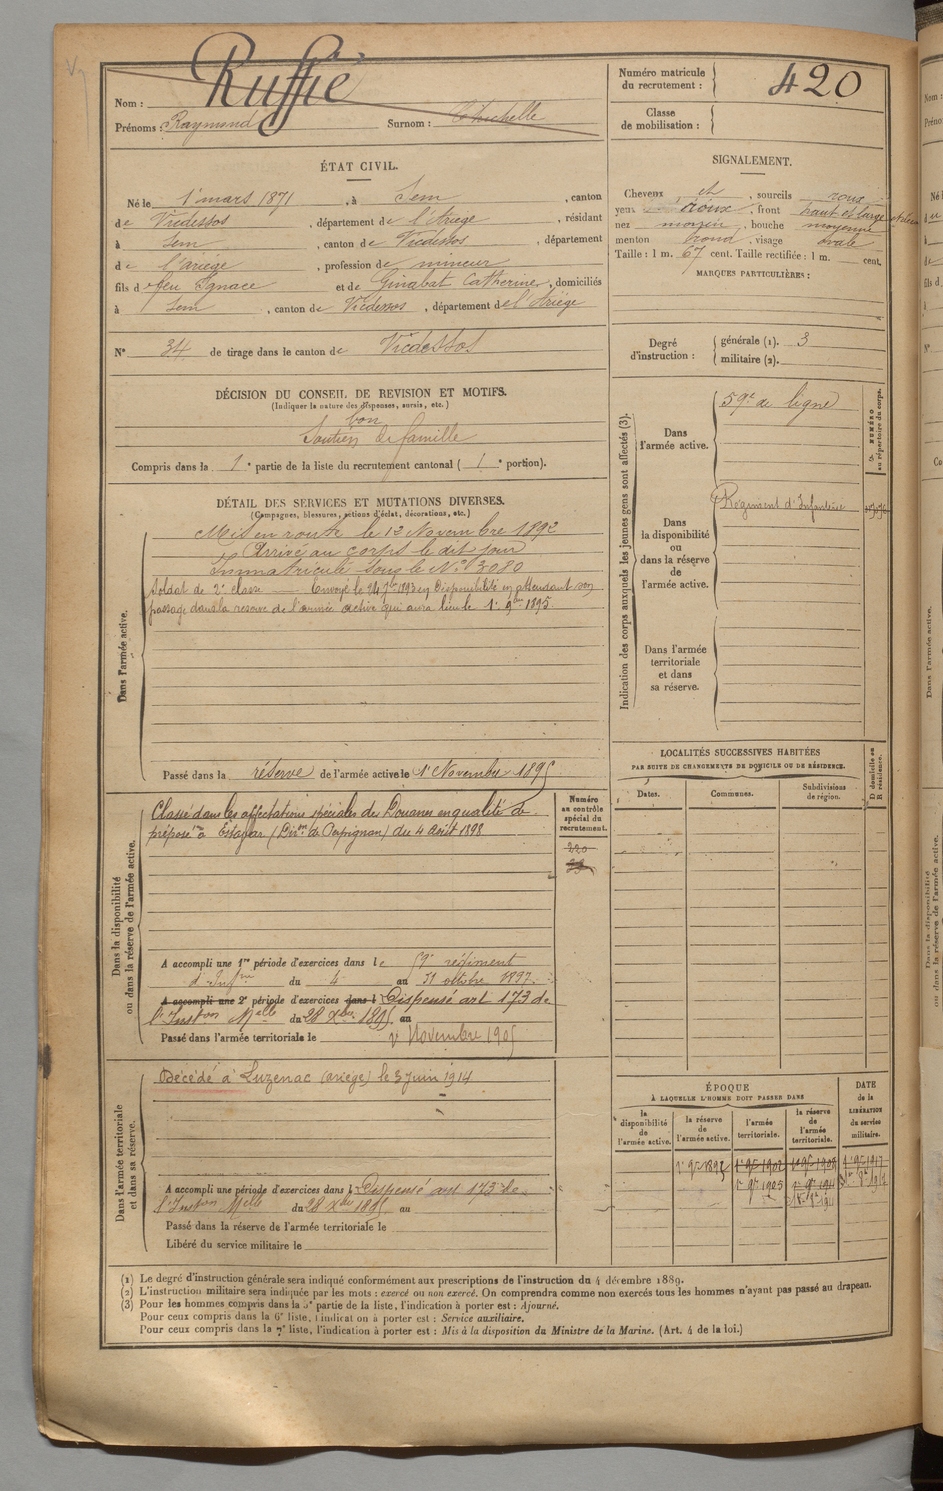 Nom : Ruffié
Prénoms : Raymond Surnom :
ÉTAT CIVIL.
Né le 1er mars 1871, à Sem, canton
de Vicdessos, département de l'Ariège, résidant
à Sem, canton de Vicdessos, département
de l'ariège, profession de mineur
fils de feu Ignace et de Ginabat Catherine, domiciliés
à Sem, canton de Vicdessos, département de l'Ariège
N° 34 de tirage dans le canton de Vicdessos
DÉCISION DU CONSEIL DE REVISION ET MOTIFS.
(Indiquer la nature des dispenses, sursis, etc.)
bon
Soutien de famille
Compris dans la 1e partie de la liste du recrutement cantonal ( 1e portion).
DÉTAIL DES SERVICES ET MUTATIONS DIVERSES.
(Campagnes, blessures, actions d'éclat, décorations, etc.)
Dans l'armée active.
Mis en route le 12 Novembre 1892
Arrivé au corps le dit jour
Immatriculé sous le N° 3080
Soldat de 2e classe Envoyé le 24 7bre 1893 en disponibilité en attendant son
passage dans la reserve de l'armée active qui aura lieu le 1er 9bre 1895
Passé dans la réserve de l'armée active le 1er Novembre 1895
Dans la disponibilité
ou dans la réserve de l'armée active.
Classé dans les affectations spéciales des Douanes en qualité de
préposé à Estagar (Divon de Perpignan) du 4 Août 1898
Numéro
au contrôle
spécial du
recrutement.
220
A accompli une 1re période d'exercices dans le 59e régiment
d'Infrie du 4 au 31 octobre 1897
A accompli une 2e période d'exercices dans l Dispensé art 173 de
l'Inston Melle du 28 Xbre 1895 au
Passé dans l'armée territoriale le Novembre 1905
Dans l'armée territoriale
et dans sa réserve.
Décédé à Luzenac (ariège) le 3 Juin 1914
A accompli une période d'exercices dans l Dispensé art 173 de
l'Inston Melle du 28 Xbre 1895 au
Passé dans la réserve de l'armée territoriale le
Libéré du service militaire le
Numéro matricule
du recrutement : 420
Classe
de mobilisation :
SIGNALEMENT.
Cheveux et, sourcils roux
yeux roux, front haut et large
nez moyen, bouche moyenne
menton rond, visage ovale
Taille : 1 m. 67 cent. Taille rectifiée : 1 m. cent.
MARQUES PARTICULIÈRES :
Degré
d'instruction :
générale (1). 3
militaire (2).
Indication des corps auxquels les jeunes gens sont affectés (3).
NUMÉRO
au répertoire du corps.
Dans
l'armée active.
59e de ligne
Dans
la disponibilité
ou
dans la réserve
de
l'armée active.
Régiment d'Infanterie
Dans l'armée
territoriale
et dans
sa réserve.
LOCALITÉS SUCCESSIVES HABITÉES
PAR SUITE DE CHANGEMENTS DE DOMICILE OU DE RÉSIDENCE.
D domicile ou
R résidence.
Dates. Communes. Subdivisions
de région.
ÉPOQUE
À LAQUELLE L'HOMME DOIT PASSER DANS
la
disponibilité
de
l'armée active.
la réserve
de
l'armée active.
l'armée
territoriale.
la réserve
de
l'armée
territoriale.
DATE
de la
LIBÉRATION
du service
militaire.
1er 9bre 1895 1er 9bre 1902 1er 9bre 1908 1er 9bre 1917
1er 9bre 1905 1er 9bre 1911
(1) Le degré d'instruction générale sera indiqué conformément aux prescriptions de l'instruction du 4 décembre 1889.
(2) L'instruction militaire sera indiquée par les mots : exercé ou non exercé. On comprendra comme non exercés tous les hommes n'ayant pas passé au drapeau.
(3) Pour les hommes compris dans la 5e partie de la liste, l'indication à porter est : Ajourné.
Pour ceux compris dans la 6e liste, l'indication à porter est : Service auxiliaire.
Pour ceux compris dans la 7e liste, l'indication à porter est : Mis à la disposition du Ministre de la Marine. (Art. 4 de la loi.)